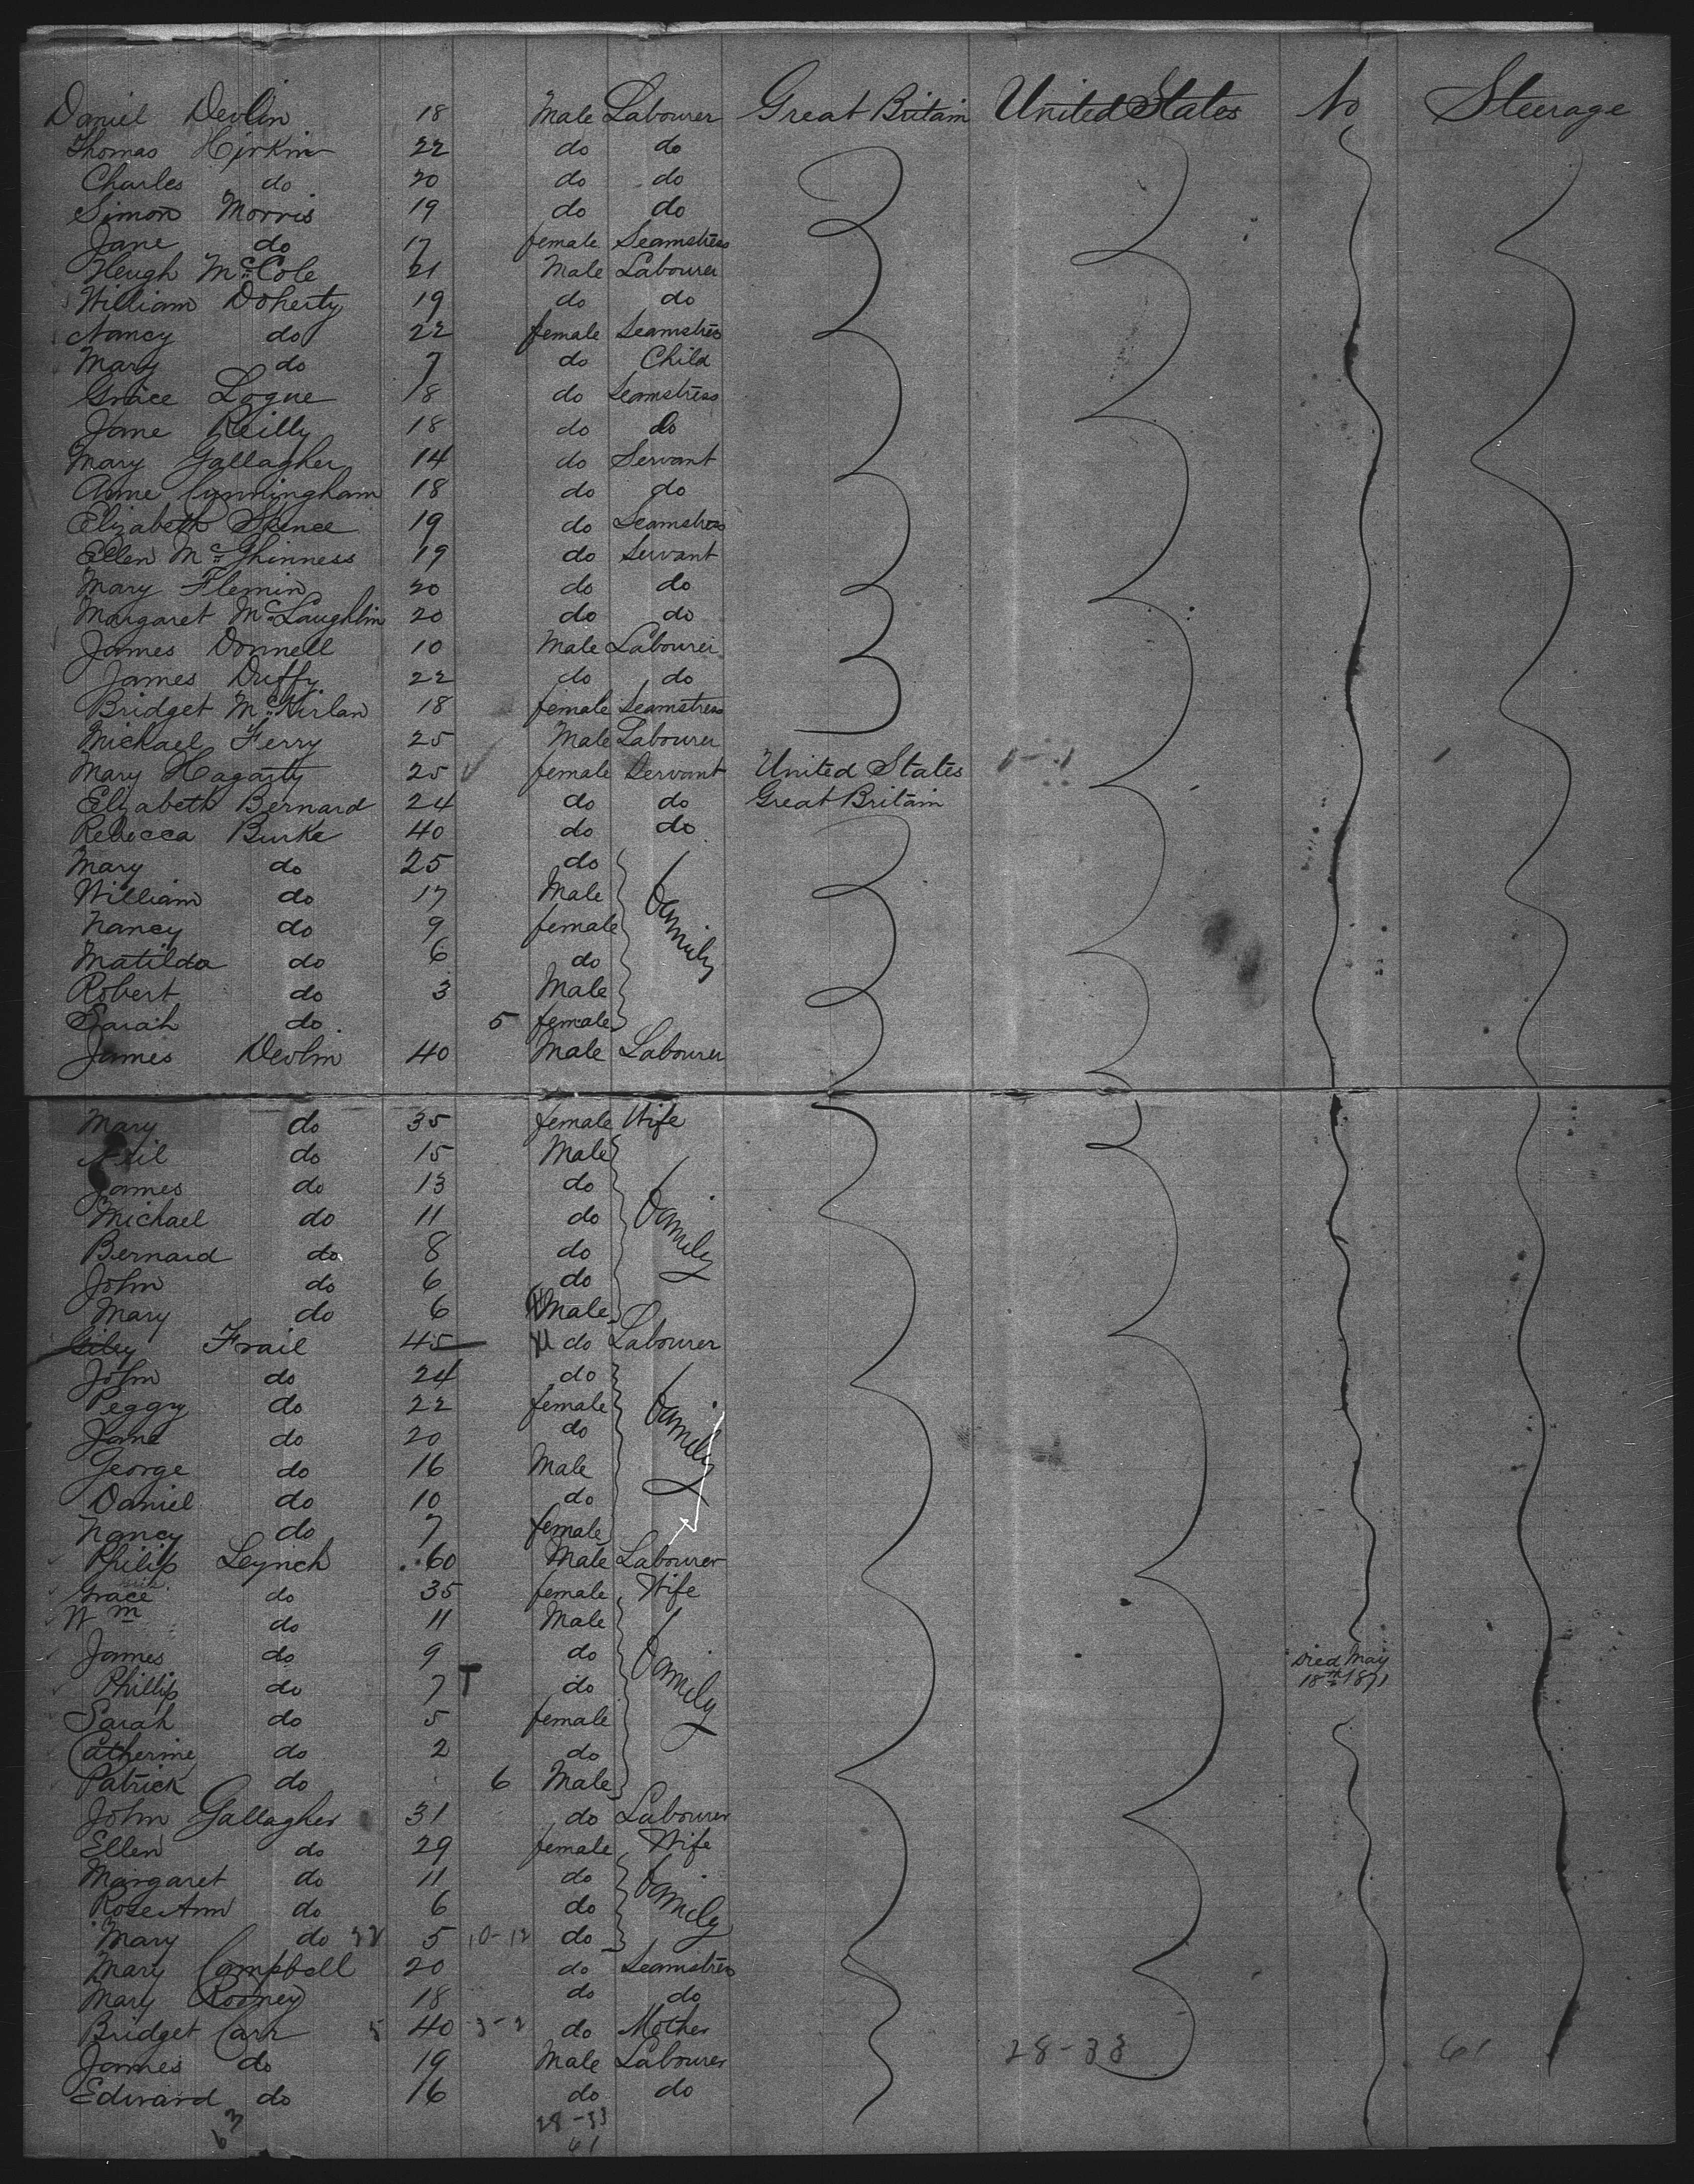 Daniel Devlin 18 Male Labourer Great Britain United States No Steerage
Thomas Hirkin 22 do do
Charles do 20 do do
Simon Morris 19 do do
Jane do 17 female Seamstress
Heugh McCole 21 Male Labourer
William Doherty 19 do do
Nancy do 22 female Seamstress
Mary do 7 do Child
Grace Logue 18 do Seamstress
Jane Reilly 18 do do
Mary Gallagher 14 do Servant
Anne Cunningham 18 do do
Elizabeth Spence 19 do Seamstress
Ellen McGhinness 19 do Servant
Mary Flemin 20 do do
Margaret McLaughlin 20 do do
James Donnell 10 Male Labourer
James Duffy 22 do do
Bridget McKirlan 18 female Seamstress
Michael Ferry 25 Male Labourer
Mary Hagarty 25 female Servant United States
Elizabeth Bernard 24 do do Great Britain
Rebecca Burke 40 do do
Mary do 25 do
William do 17 Male
Nancy do 9 female Family
Matilda do 6 do
Robert do 3 Male
Sarah do 5 female
James Devlin 40 Male Labourer
Mary do 35 female Wife
Neil do 15 Male
James do 13 do
Michael do 11 do Family
Bernard do 8 do
John do 6 do
Mary do 6 Male
Frail 45 do Labourer
John do 24 do
Peggy do 22 female
Jane do 20 do Family
George do 16 Male
Daniel do 10 do
Nancy do 7 female
Philip Leynch 60 Male Labourer
Grace do 35 female Wife
Wm do 11 Male
James do 9 do Died May
Phillip do 7 do Family 18th 1871
Sarah do 5 female
Catherine do 2 do
Patrick do 6 Male
John Gallagher 31 do Labourer
Ellen do 29 female Wife
Margaret do 11 do
Rose Ann do 6 do Family
Mary do 5 10-12 do
Mary Campbell 20 do Seamstress
Mary Rooney 18 do do
Bridget Carr 5 40 3-2 do Mother
James do 19 Male Labourer 28-33 61
Edward do 16 do do
63 28-33
61